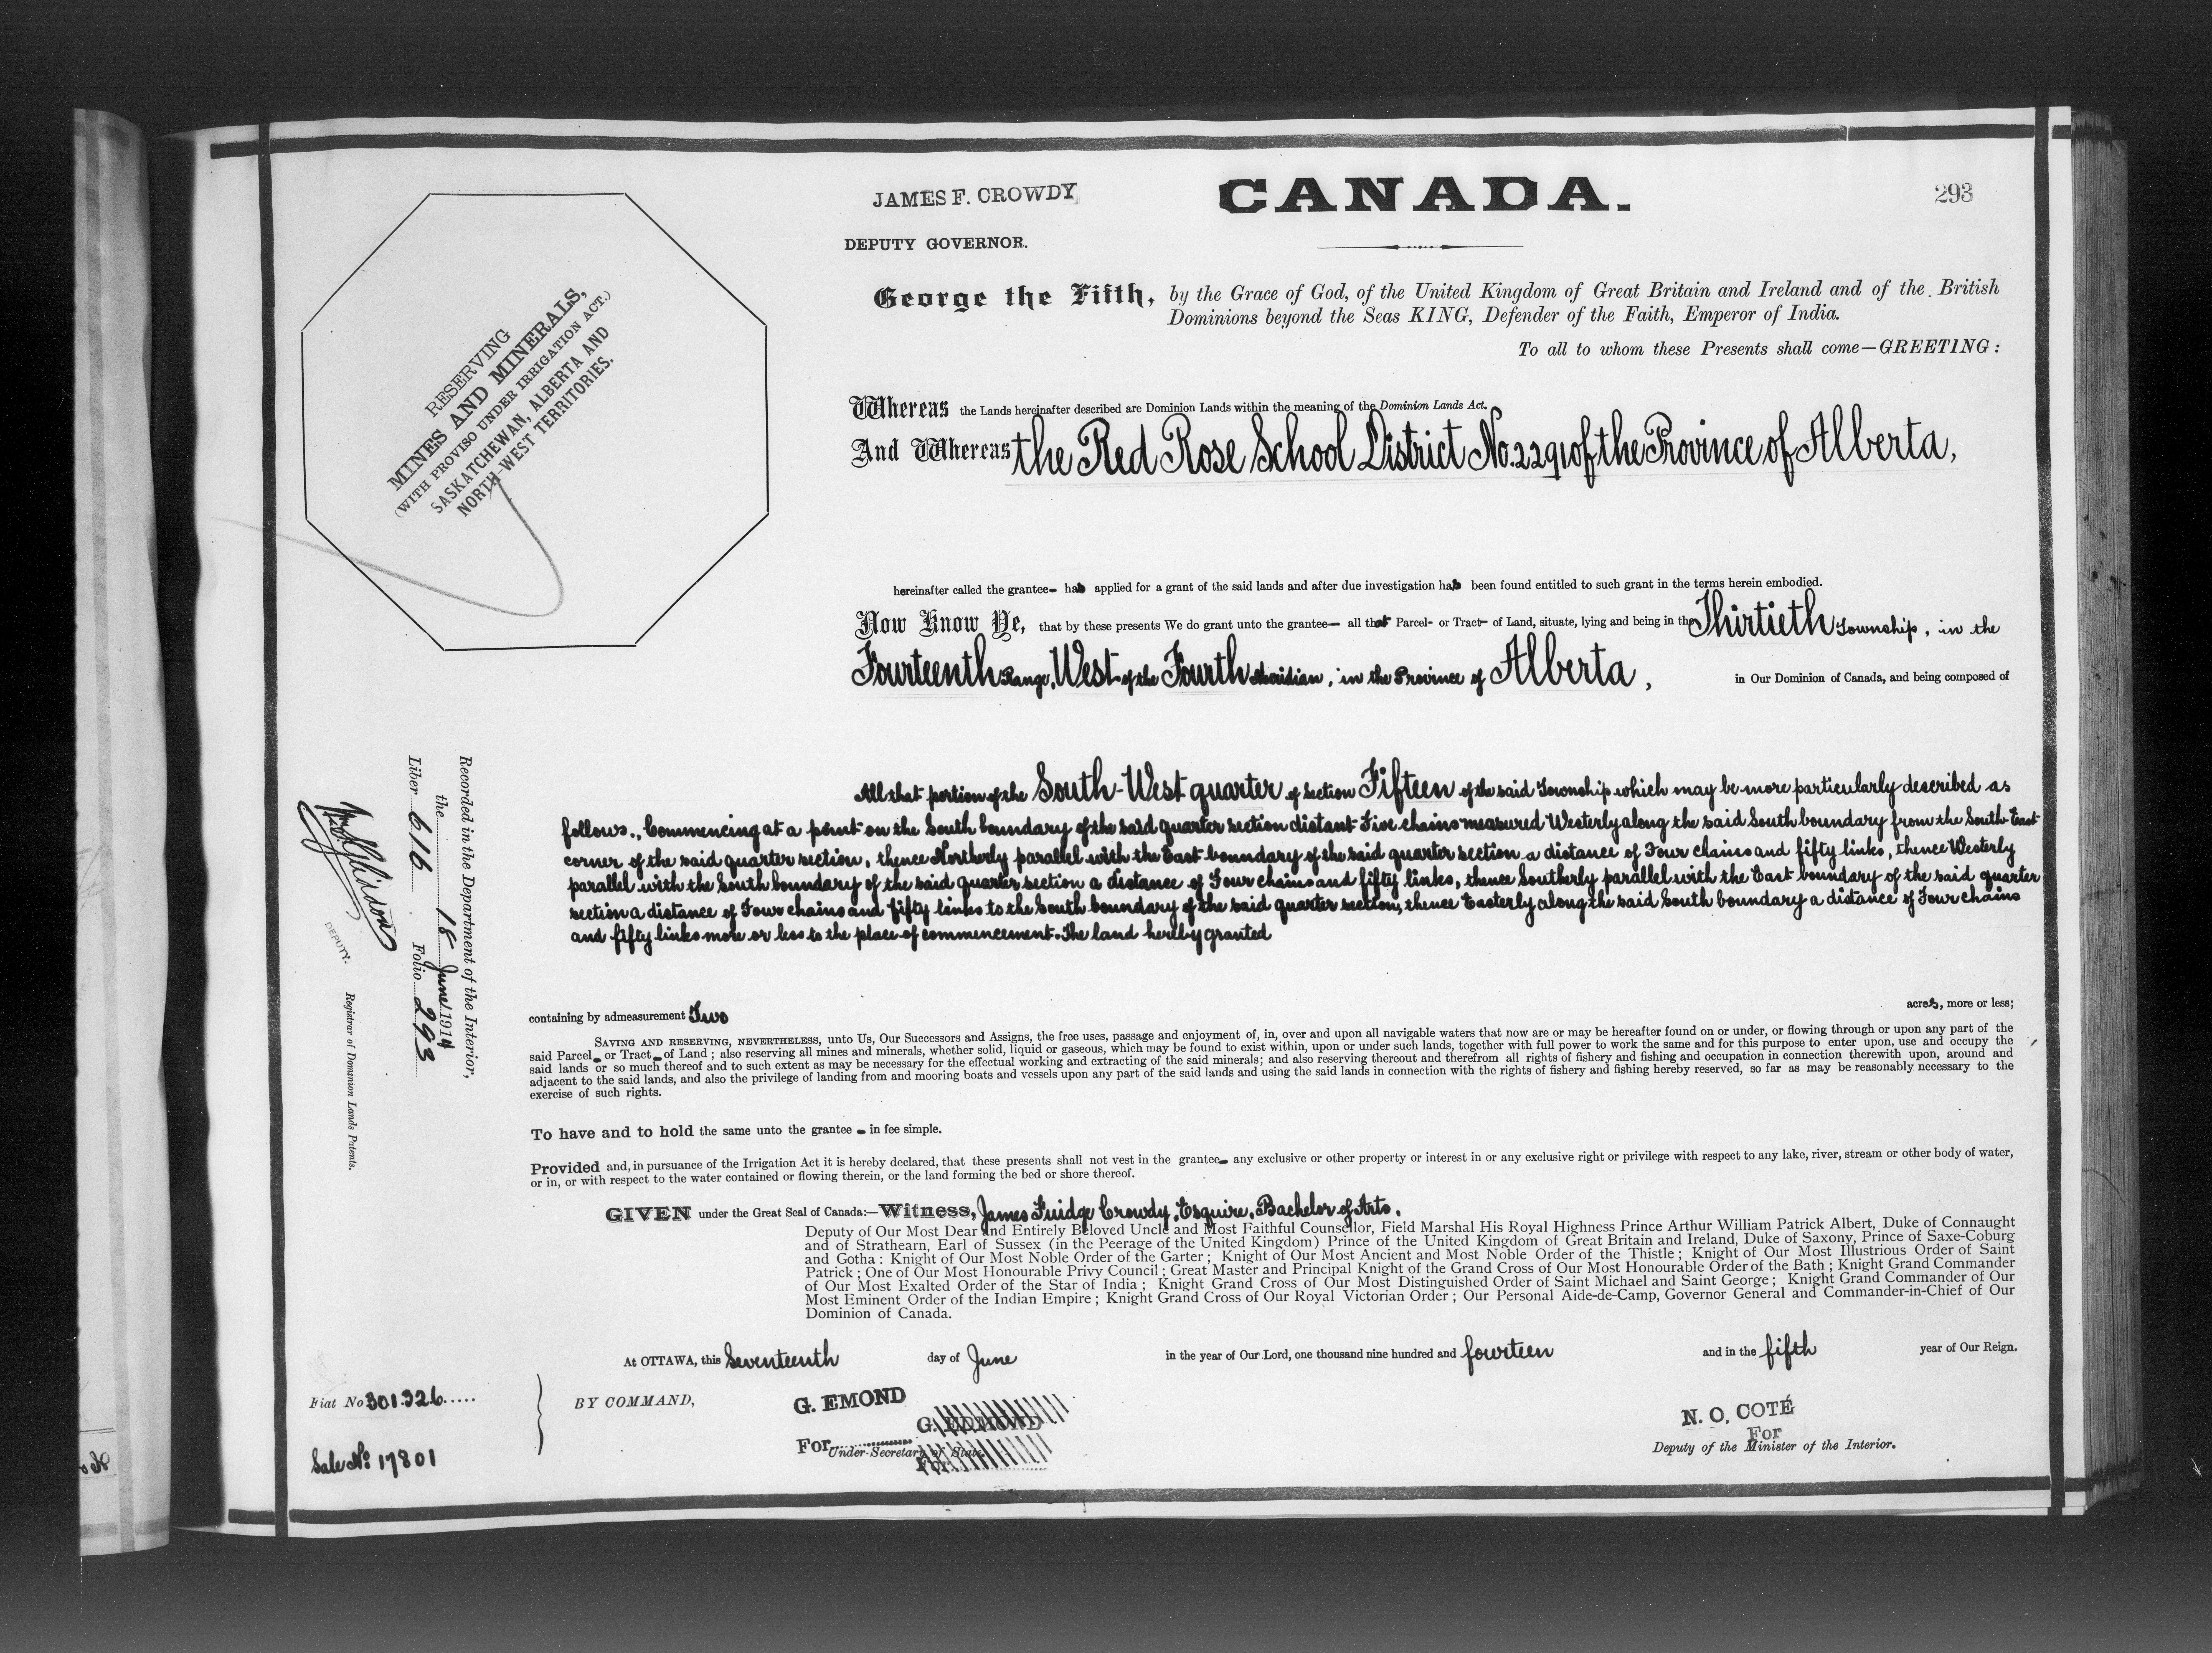 JAMES F. CROWDY
CANADA.
293
DEPUTY GOVERNOR.
George the Fifth, by the Grace of God, of the United Kingdom of Great Britain and Ireland and of the British
Dominions beyond the Seas KING, Defender of the Faith, Emperor of India.
To all to whom these Presents shall come—GREETING:
RESERVING
MINES AND MINERALS,
(WITH PROVISO UNDER IRRIGATION ACT.)
SASKATCHEWAN, ALBERTA AND
NORTH-WEST TERRITORIES.
Whereas the Lands hereinafter described are Dominion Lands within the meaning of the Dominion Lands Act.
And Whereas the Red Rose School District No. 2291 of the Province of Alberta,
hereinafter called the grantee- has applied for a grant of the said lands and after due investigation has been found entitled to such grant in the terms herein embodied.
Now Know Ye, that by these presents We do grant unto the grantee— all that Parcel- or Tract- of Land, situate, lying and being in the Thirtieth Township, in the
Fourteenth Range, West of the Fourth Meridian, in the Province of Alberta, in Our Dominion of Canada, and being composed of
All that portion of the South-West quarter of section Fifteen of the said Township which may be more particularly described as
follows., Commencing at a point on the South boundary of the said quarter section distant Five chains measured Westerly along the said South boundary from the South-East
corner of the said quarter section, thence Northerly parallel with the East boundary of the said quarter section a distance of Four chains and fifty links, thence Westerly
parallel with the South boundary of the said quarter section a distance of Four chains and fifty links, thence Southerly parallel with the East boundary of the said quarter
section a distance of Four chains and fifty links to the South boundary of the said quarter section, thence Easterly along the said South boundary a distance of Four chains
and fifty links more or less to the place of commencement. The land hereby granted
containing by admeasurement Two acres, more or less;
SAVING AND RESERVING, NEVERTHELESS, unto Us, Our Successors and Assigns, the free uses, passage and enjoyment of, in, over and upon all navigable waters that now are or may be hereafter found on or under, or flowing through or upon any part of the
said Parcel- or Tract- of Land; also reserving all mines and minerals, whether solid, liquid or gaseous, which may be found to exist within, upon or under such lands, together with full power to work the same and for this purpose to enter upon, use and occupy the
said lands or so much thereof and to such extent as may be necessary for the effectual working and extracting of the said minerals; and also reserving thereout and therefrom all rights of fishery and fishing and occupation in connection therewith upon, around and
adjacent to the said lands, and also the privilege of landing from and mooring boats and vessels upon any part of the said lands and using the said lands in connection with the rights of fishery and fishing hereby reserved, so far as may be reasonably necessary to the
exercise of such rights.
To have and to hold the same unto the grantee - in fee simple.
Provided and, in pursuance of the Irrigation Act it is hereby declared, that these presents shall not vest in the grantee- any exclusive or other property or interest in or any exclusive right or privilege with respect to any lake, river, stream or other body of water,
or in, or with respect to the water contained or flowing therein, or the land forming the bed or shore thereof.
GIVEN under the Great Seal of Canada:—Witness, James Fuidge Crowdy, Esquire, Bachelor of Arts.
Deputy of Our Most Dear and Entirely Beloved Uncle and Most Faithful Counsellor, Field Marshal His Royal Highness Prince Arthur William Patrick Albert, Duke of Connaught
and of Strathearn, Earl of Sussex (in the Peerage of the United Kingdom) Prince of the United Kingdom of Great Britain and Ireland, Duke of Saxony, Prince of Saxe-Coburg
and Gotha: Knight of Our Most Noble Order of the Garter; Knight of Our Most Ancient and Most Noble Order of the Thistle; Knight of Our Most Illustrious Order of Saint
Patrick; One of Our Most Honourable Privy Council; Great Master and Principal Knight of the Grand Cross of Our Most Honourable Order of the Bath; Knight Grand Commander
of Our Most Exalted Order of the Star of India; Knight Grand Cross of Our Most Distinguished Order of Saint Michael and Saint George; Knight Grand Commander of Our
Most Eminent Order of the Indian Empire; Knight Grand Cross of Our Royal Victorian Order; Our Personal Aide-de-Camp, Governor General and Commander-in-Chief of Our
Dominion of Canada.
At OTTAWA, this Seventeenth day of June in the year of Our Lord, one thousand nine hundred and fourteen and in the fifth year of Our Reign.
Fiat No 301.326.....
BY COMMAND,
G. EMOND
G. EDMOND
For
Under-Secretary of State.
For
N. O. COTÉ
For
Deputy of the Minister of the Interior.
Sale No. 17801
Recorded in the Department of the Interior,
the 18 June 1914
Liber 616 Folio 293
DEPUTY.
Registrar of Dominion Lands Patents.